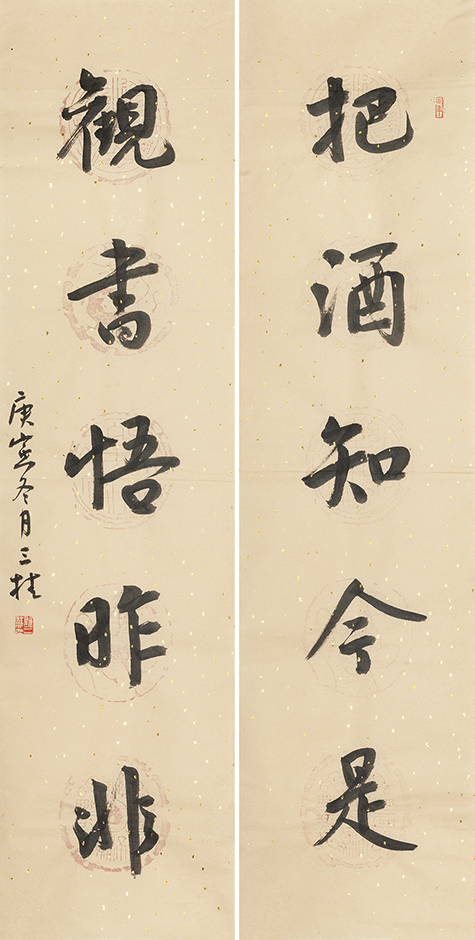 把酒知今是
觀書悟昨非
庚寅冬月三桂